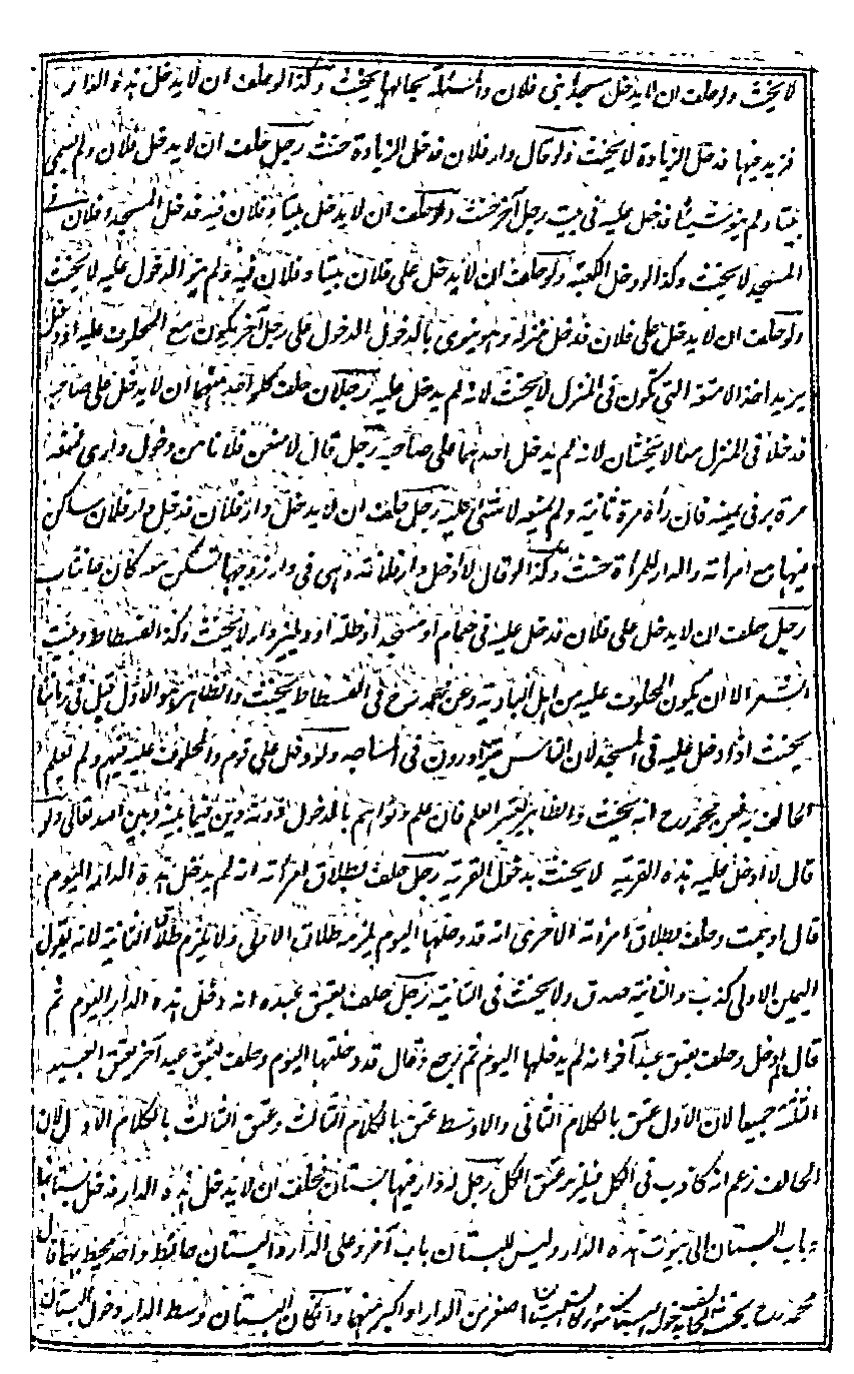 لا يحنث ولو حلف ان لا يدخل مسجد بني فلان والمسئلة بحالها يحنث وكذا لو حلف ان لا يدخل هذه الدار
فزيد فيها فدخل الزيادة لا يحنث ولو قال دار فلان فدخل الزيادة حنث رجل حلف ان لا يدخل على فلان ولم يسمي
بيتا ولم ينو شيئا فدخل عليه في بيت رجل آخر حنث ولو حلف ان لا يدخل بيتا وفلان فيه فدخل المسجد وفلان في
المسجد لا يحنث وكذا لو دخل الكعبة ولو حلف ان لا يدخل على فلان بيتا وفلان فيه ولم ينو الدخول عليه لا يحنث
ولو حلف ان لا يدخل على فلان فدخل منزله وهو ينوى بالدخول الدخول على رجل آخر يكون مع المحلوف عليه او دخل
يريد اخذ الامتعة التي تكون في المنزل لا يحنث لانه لم يدخل عليه رجلان حلف كل واحد منهما ان لا يدخل على صاحبه
فدخلا في المنزل معا لا يحنثان لانه لم يدخل احدهما على صاحبه رجل قال لامنعن فلانا من دخول داري فمنعه
مرة بر في يمينه فان رآه مرة ثانية ولم يمنعه لا شئ عليه رجل حلف ان لا يدخل دار فلان فدخل دار فلان ساكن
فيها مع امرأته والدار للمرأة حنث وكذا لو قال لا ادخل دار فلانة وهي في دار زوجها تسكن معه كان حانثا
رجل حلف ان لا يدخل على فلان فدخل عليه في حمام او مسجد او ظلة او دهليز دار لا يحنث وكذا الفسطاط وبيت
الشعر الا ان يكون المحلوف عليه من اهل البادية وعن محمد رح في الفسطاط يحنث والظاهر هو الاول قيل في زماننا
يحنث اذا دخل عليه في المسجد لان الناس يتزاورون في المساجد ولو دخل على قوم والمحلوف عليه فيهم ولم يعلم
الحالف به فعن محمد رح انه يحنث والظاهر يعتبر العلم فان علم ونواهم بالدخول دونه دين فيما بينه وبين الله تعالى ولو
قال لا ادخل عليه هذه القرية لا يحنث بدخول القرية رجل حلف بطلاق امرأته انه لم يدخل هذه الدار اليوم
قال اوهمت وحلف بطلاق امرأته الاخرى انه قد دخلها اليوم يلزمه طلاق الاولى ولا يلزم طلاق الثانية لانه يقول
اليمين الاولى كذب والثانية صدق ولا يحنث في الثانية رجل حلف بعتق عبده انه دخل هذه الدار اليوم ثم
قال لم ادخل وحلف بعتق عبد آخر انه لم يدخلها اليوم ثم رجع وقال قد دخلتها اليوم وحلف بعتق عبد آخر يعتق العبيد
الثلثة جميعا لان الاول عتق بالكلام الثاني والاوسط عتق بالكلام الثالث وعتق الثالث بالكلام الاوسط لان
الحالف زعم انه كاذب في الكل فيلزمه عتق الكل رجل له دار فيها بستان فحلف ان لا يدخل هذه الدار فدخل بستانها
وباب البستان الى بيوت هذه الدار وليس للبستان باب آخر وعلى الدار والبستان حائط واحد محيط بهما قال
محمد رح يحنث الحالف بدخول البستان اصغر من الدار او اكبر منها وان كان البستان وسط الدار ودخل البستان